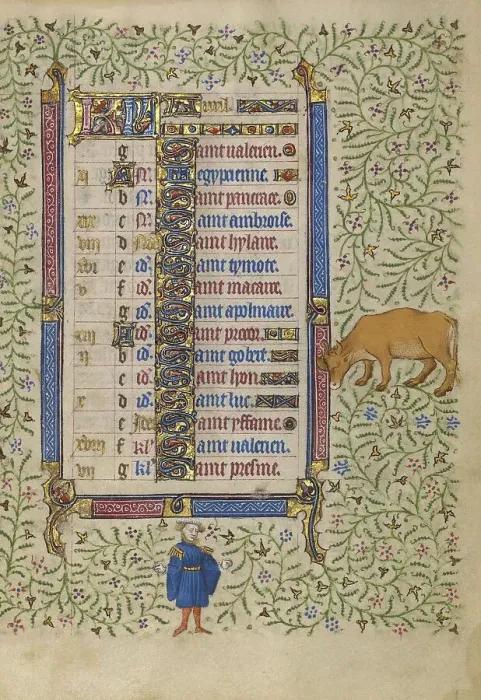 KL Auril.
g Saint ualerien.
xi A N. La egypcienne.
b N. Saint pancrace.
xix c N. Saint ambroise.
viii d Non Saint hylaire.
xvi e id. Saint tymote.
v f id. Saint macaire.
g id. Saint apolinaire.
xiii A id. Saint procor.
ii b id. Saint gobert.
c id. Saint hon
x d id. Saint luc.
e Ides Saint yffaime.
xviii f kl Saint ualerien.
vii g kl Saint presme.